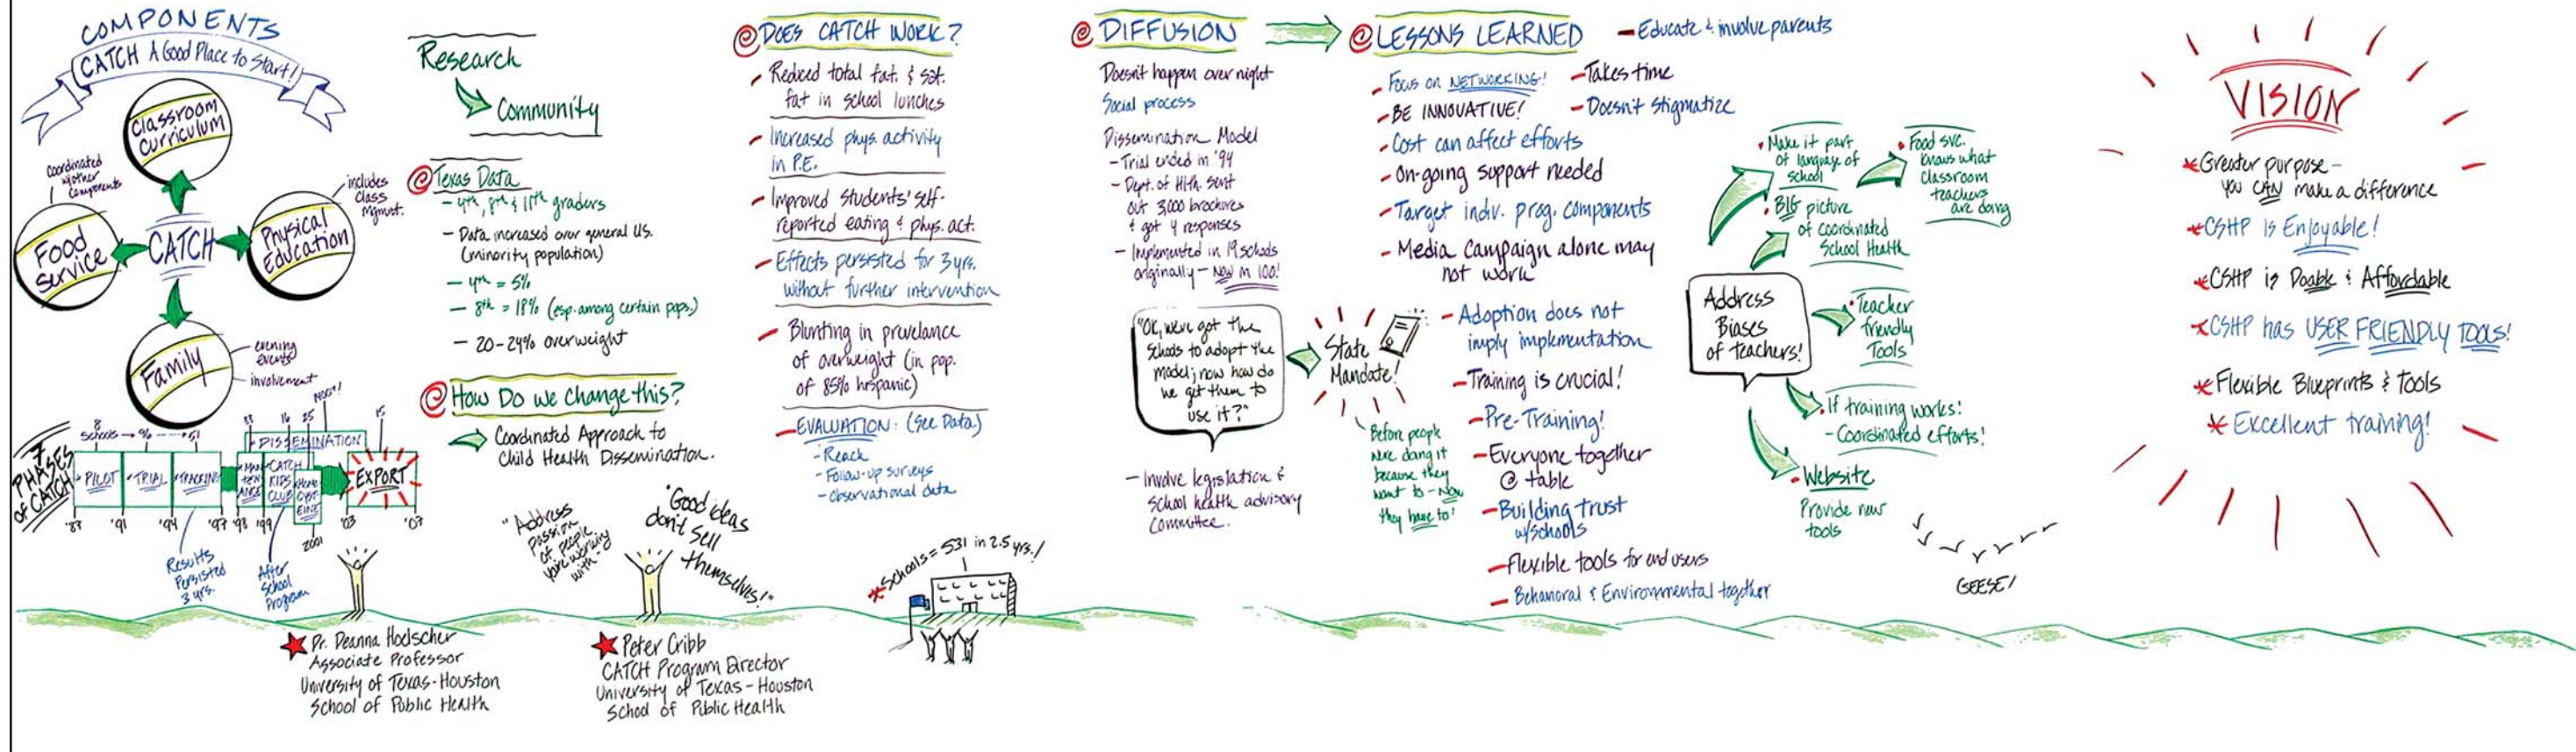 COMPONENTS
CATCH A Good Place to Start!
Classroom
Curriculum
Coordinated
w/other
components
Food
Service
CATCH
Physical
Education
includes
class
Mgmt.
Family
evening
events
involvement
7
PHASES
of CATCH
8
Schools → 96 → 51
PILOT
TRIAL
TRACKING
DISSEMINATION
CATCH
KIDS
CLUB
EXPORT
15
'87
'91
'94
'97
'98
'99
2001
'03
'07
Results
Persisted
3 yrs.
After
School
Program
Research
Community
Texas Data
- 4th, 8th & 11th graders
- Data increased over general U.S.
(minority population)
- 4th = 5%
- 8th = 18% (esp. among certain pops.)
- 20-24% overweight
How Do we change this?
Coordinated Approach to
Child Health Dissemination.
"Address
passion
of people
you're working
with-"
"Good ideas
don't sell
themselves!"
Dr. Deanna Hoelscher
Associate Professor
University of Texas-Houston
School of Public Health
Peter Cribb
CATCH Program Director
University of Texas - Houston
School of Public Health
DOES CATCH WORK?
Reduced total fat & sat.
fat in school lunches
Increased phys. activity
in P.E.
Improved students' self-
reported eating & phys. act.
Effects persisted for 3 yrs.
without further intervention
Blunting in prevelance
of overweight (in pop.
of 85% hispanic)
EVALUATION: (See Data)
- Reach
- Follow-up surveys
- Observational data
* Schools = 531 in 2.5 yrs.!
DIFFUSION
Doesn't happen over night
Social process
Dissemination Model
- Trial ended in '94
- Dept. of Hlth. sent
out 3,000 brochures
& got 4 responses
- Implemented in 19 schools
originally - Now in 100!
"OK, we've got the
schools to adopt the
model; now how do
we get them to
use it?"
State
Mandate!
Before people
were doing it
because they
want to - Now
they have to!
- Involve legislation &
School health advisory
Committee.
LESSONS LEARNED
- Educate & involve parents
- Focus on NETWORKING!
- Takes time
- BE INNOVATIVE!
- Doesn't stigmatize
- Cost can affect efforts
- On-going support needed
- Target indiv. prog. components
- Media Campaign alone may
not work
- Adoption does not
imply implementation
- Training is crucial!
- Pre-Training!
- Everyone together
@ table
- Building trust
w/schools
- Flexible tools for end users
- Behavioral & Environmental together
Address
Biases
of teachers!
Make it part
of language of
school
Food svc.
knows what
classroom
teachers
are doing
BIG picture
of coordinated
School Health
Teacher
friendly
Tools
If training works:
- Coordinated efforts!
Website
Provide new
tools
GEESE!
VISION
* Greater purpose -
you CAN make a difference
* CSHP is Enjoyable!
* CSHP is Doable & Affordable
* CSHP has USER FRIENDLY TOOLS!
* Flexible Blueprints & Tools
* Excellent training!